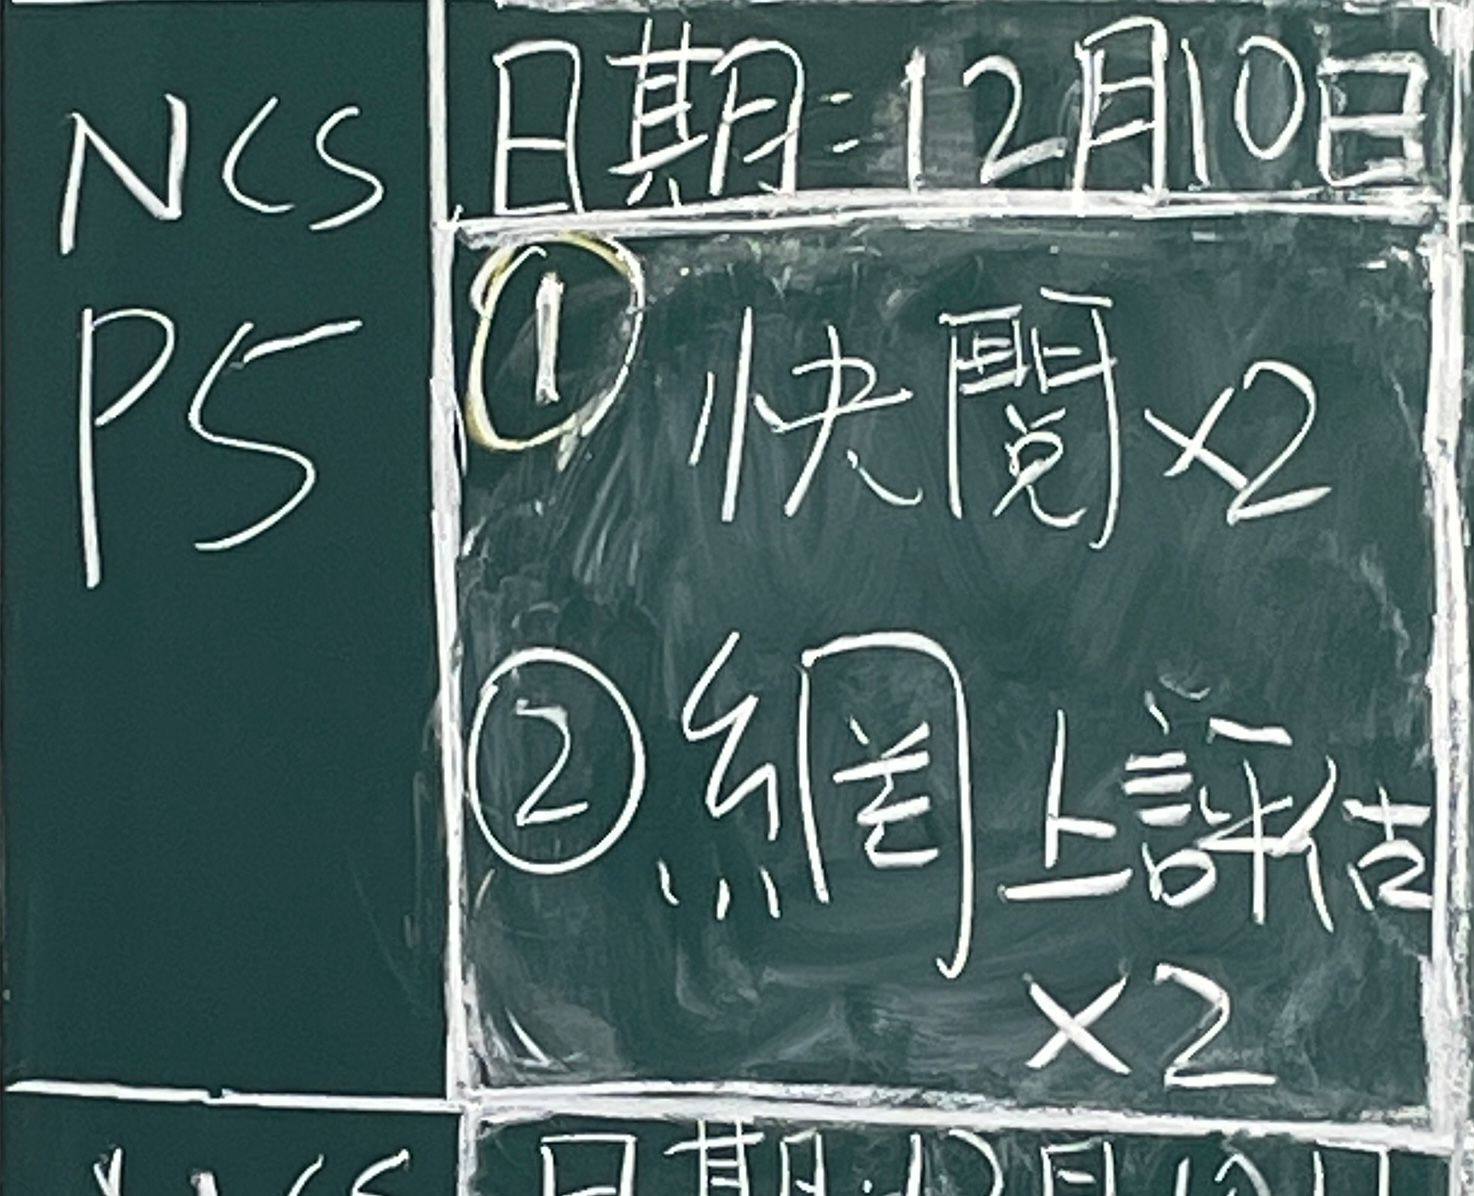 NCS
P5
日期:12月10日
① 快閱×2
② 網上評估
×2
NCS
日期:12月12日